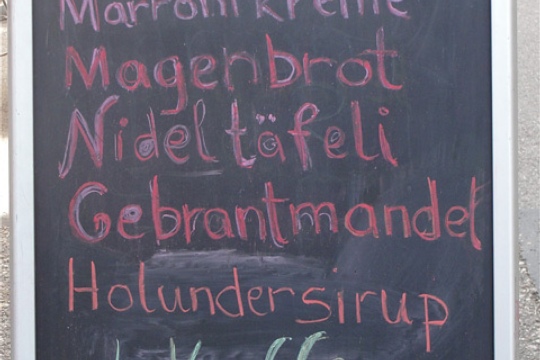 Marroni kreme
Magenbrot
Nideltäfeli
Gebrantmandel
Holundersirup